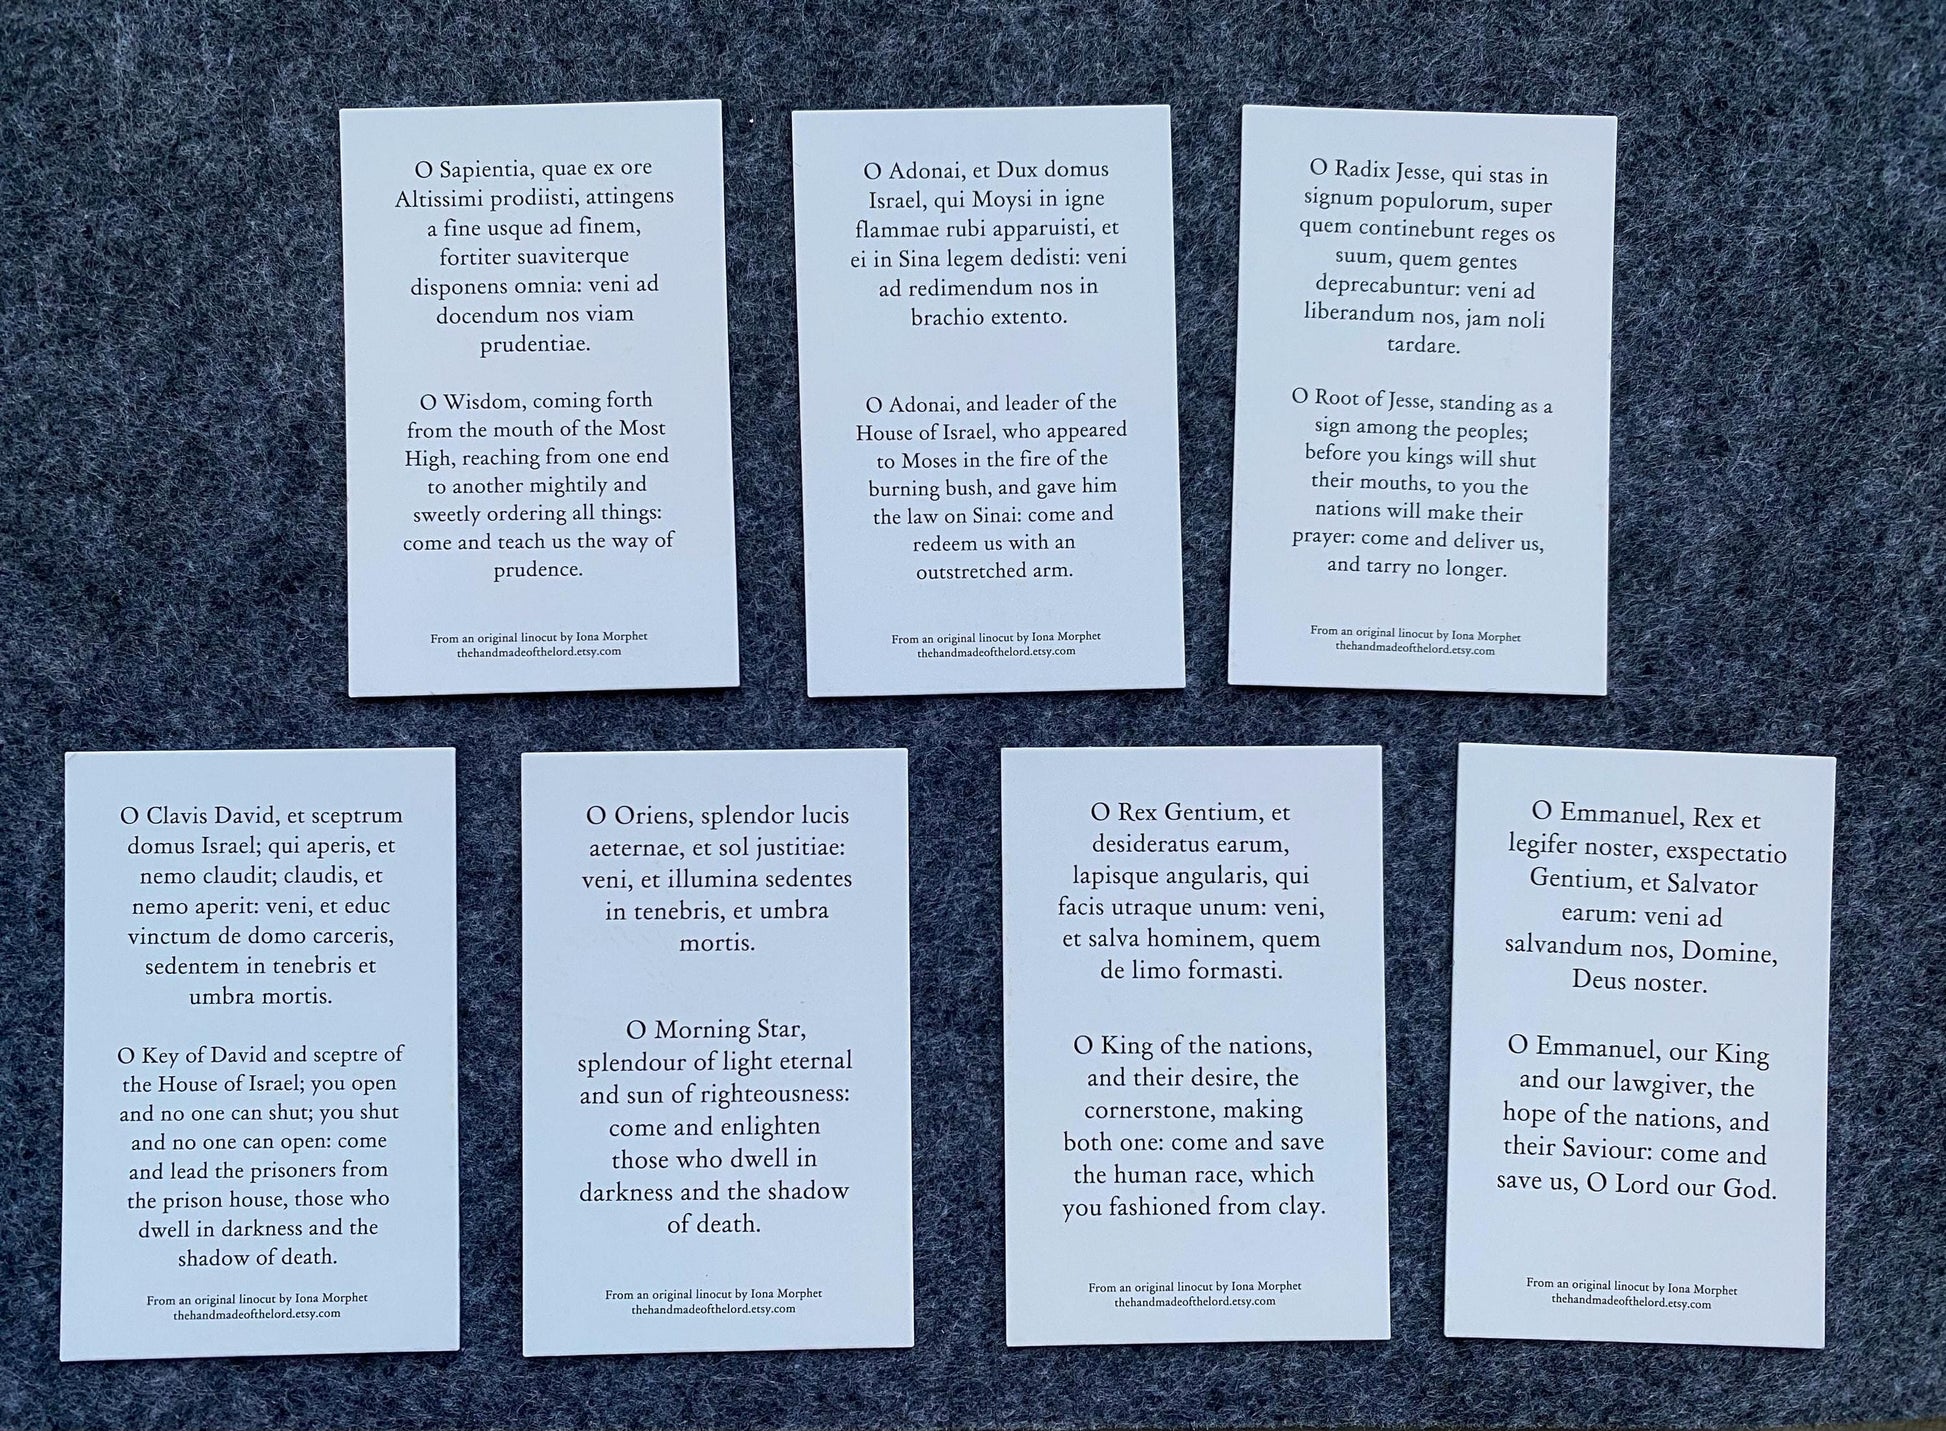 O Sapientia, quae ex ore
Altissimi prodiisti, attingens
a fine usque ad finem,
fortiter suaviterque
disponens omnia: veni ad
docendum nos viam
prudentiae.
O Wisdom, coming forth
from the mouth of the Most
High, reaching from one end
to another mightily and
sweetly ordering all things:
come and teach us the way of
prudence.
From an original linocut by Iona Morphet
thehandmadeofthelord.etsy.com
O Adonai, et Dux domus
Israel, qui Moysi in igne
flammae rubi apparuisti, et
ei in Sina legem dedisti: veni
ad redimendum nos in
brachio extento.
O Adonai, and leader of the
House of Israel, who appeared
to Moses in the fire of the
burning bush, and gave him
the law on Sinai: come and
redeem us with an
outstretched arm.
From an original linocut by Iona Morphet
thehandmadeofthelord.etsy.com
O Radix Jesse, qui stas in
signum populorum, super
quem continebunt reges os
suum, quem gentes
deprecabuntur: veni ad
liberandum nos, jam noli
tardare.
O Root of Jesse, standing as a
sign among the peoples;
before you kings will shut
their mouths, to you the
nations will make their
prayer: come and deliver us,
and tarry no longer.
From an original linocut by Iona Morphet
thehandmadeofthelord.etsy.com
O Clavis David, et sceptrum
domus Israel; qui aperis, et
nemo claudit; claudis, et
nemo aperit: veni, et educ
vinctum de domo carceris,
sedentem in tenebris et
umbra mortis.
O Key of David and sceptre of
the House of Israel; you open
and no one can shut; you shut
and no one can open: come
and lead the prisoners from
the prison house, those who
dwell in darkness and the
shadow of death.
From an original linocut by Iona Morphet
thehandmadeofthelord.etsy.com
O Oriens, splendor lucis
aeternae, et sol justitiae:
veni, et illumina sedentes
in tenebris, et umbra
mortis.
O Morning Star,
splendour of light eternal
and sun of righteousness:
come and enlighten
those who dwell in
darkness and the shadow
of death.
From an original linocut by Iona Morphet
thehandmadeofthelord.etsy.com
O Rex Gentium, et
desideratus earum,
lapisque angularis, qui
facis utraque unum: veni,
et salva hominem, quem
de limo formasti.
O King of the nations,
and their desire, the
cornerstone, making
both one: come and save
the human race, which
you fashioned from clay.
From an original linocut by Iona Morphet
thehandmadeofthelord.etsy.com
O Emmanuel, Rex et
legifer noster, exspectatio
Gentium, et Salvator
earum: veni ad
salvandum nos, Domine,
Deus noster.
O Emmanuel, our King
and our lawgiver, the
hope of the nations, and
their Saviour: come and
save us, O Lord our God.
From an original linocut by Iona Morphet
thehandmadeofthelord.etsy.com